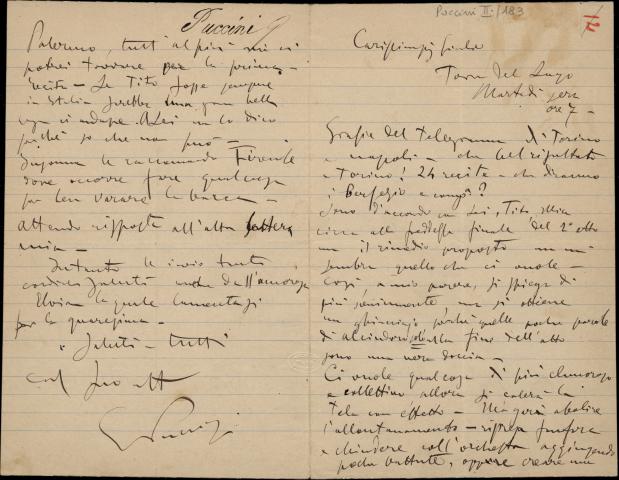 Puccini
Palermo, tutt'al più mi ci
potrei trovare per la prima
recita – Se Tito fosse sempre
in Italia sarebbe una gran bella
cosa A Lei non lo dico
perchè so che non può –
Insomma le raccomando Firenze
dove occorre fare qualcosa
per ben varare la barca –
attendo risposta all'altra lettera
mia –
Intanto le invio tanti
cordiali saluti anche dall'
Elvira la quale
per la quaresima –
Saluti a tutti
dal suo aff
GPuccini
Puccini II/183
12
Carissimo Sig Giulio
Torre del Lago
Martedì sera
ore 7 –
Grazie del telegramma di Torino
e napoli – che bel risultato
a Torino! 24 recite – che diranno
i Bersezio e comp?
Sono d'accordo con Lei, Tito, Illica
circa alla freddezza finale del 2° atto
ma il rimedio proposto non mi
sembra quello che ci vuole –
Così, a mio parere, si spiega di
più scenicamente ma si ottiene
un perchè quelle poche parole
di alcindoro alla fine dell'atto
sono una vera doccia –
Ci vuole qualcosa di più clamoroso
e collettivo allora si calerà la
tela con effetto – Magari abolire
l'allontanamento – ripresa fanfara
e chiudere coll'orchestra aggiungendo
poche battute, oppure creare una